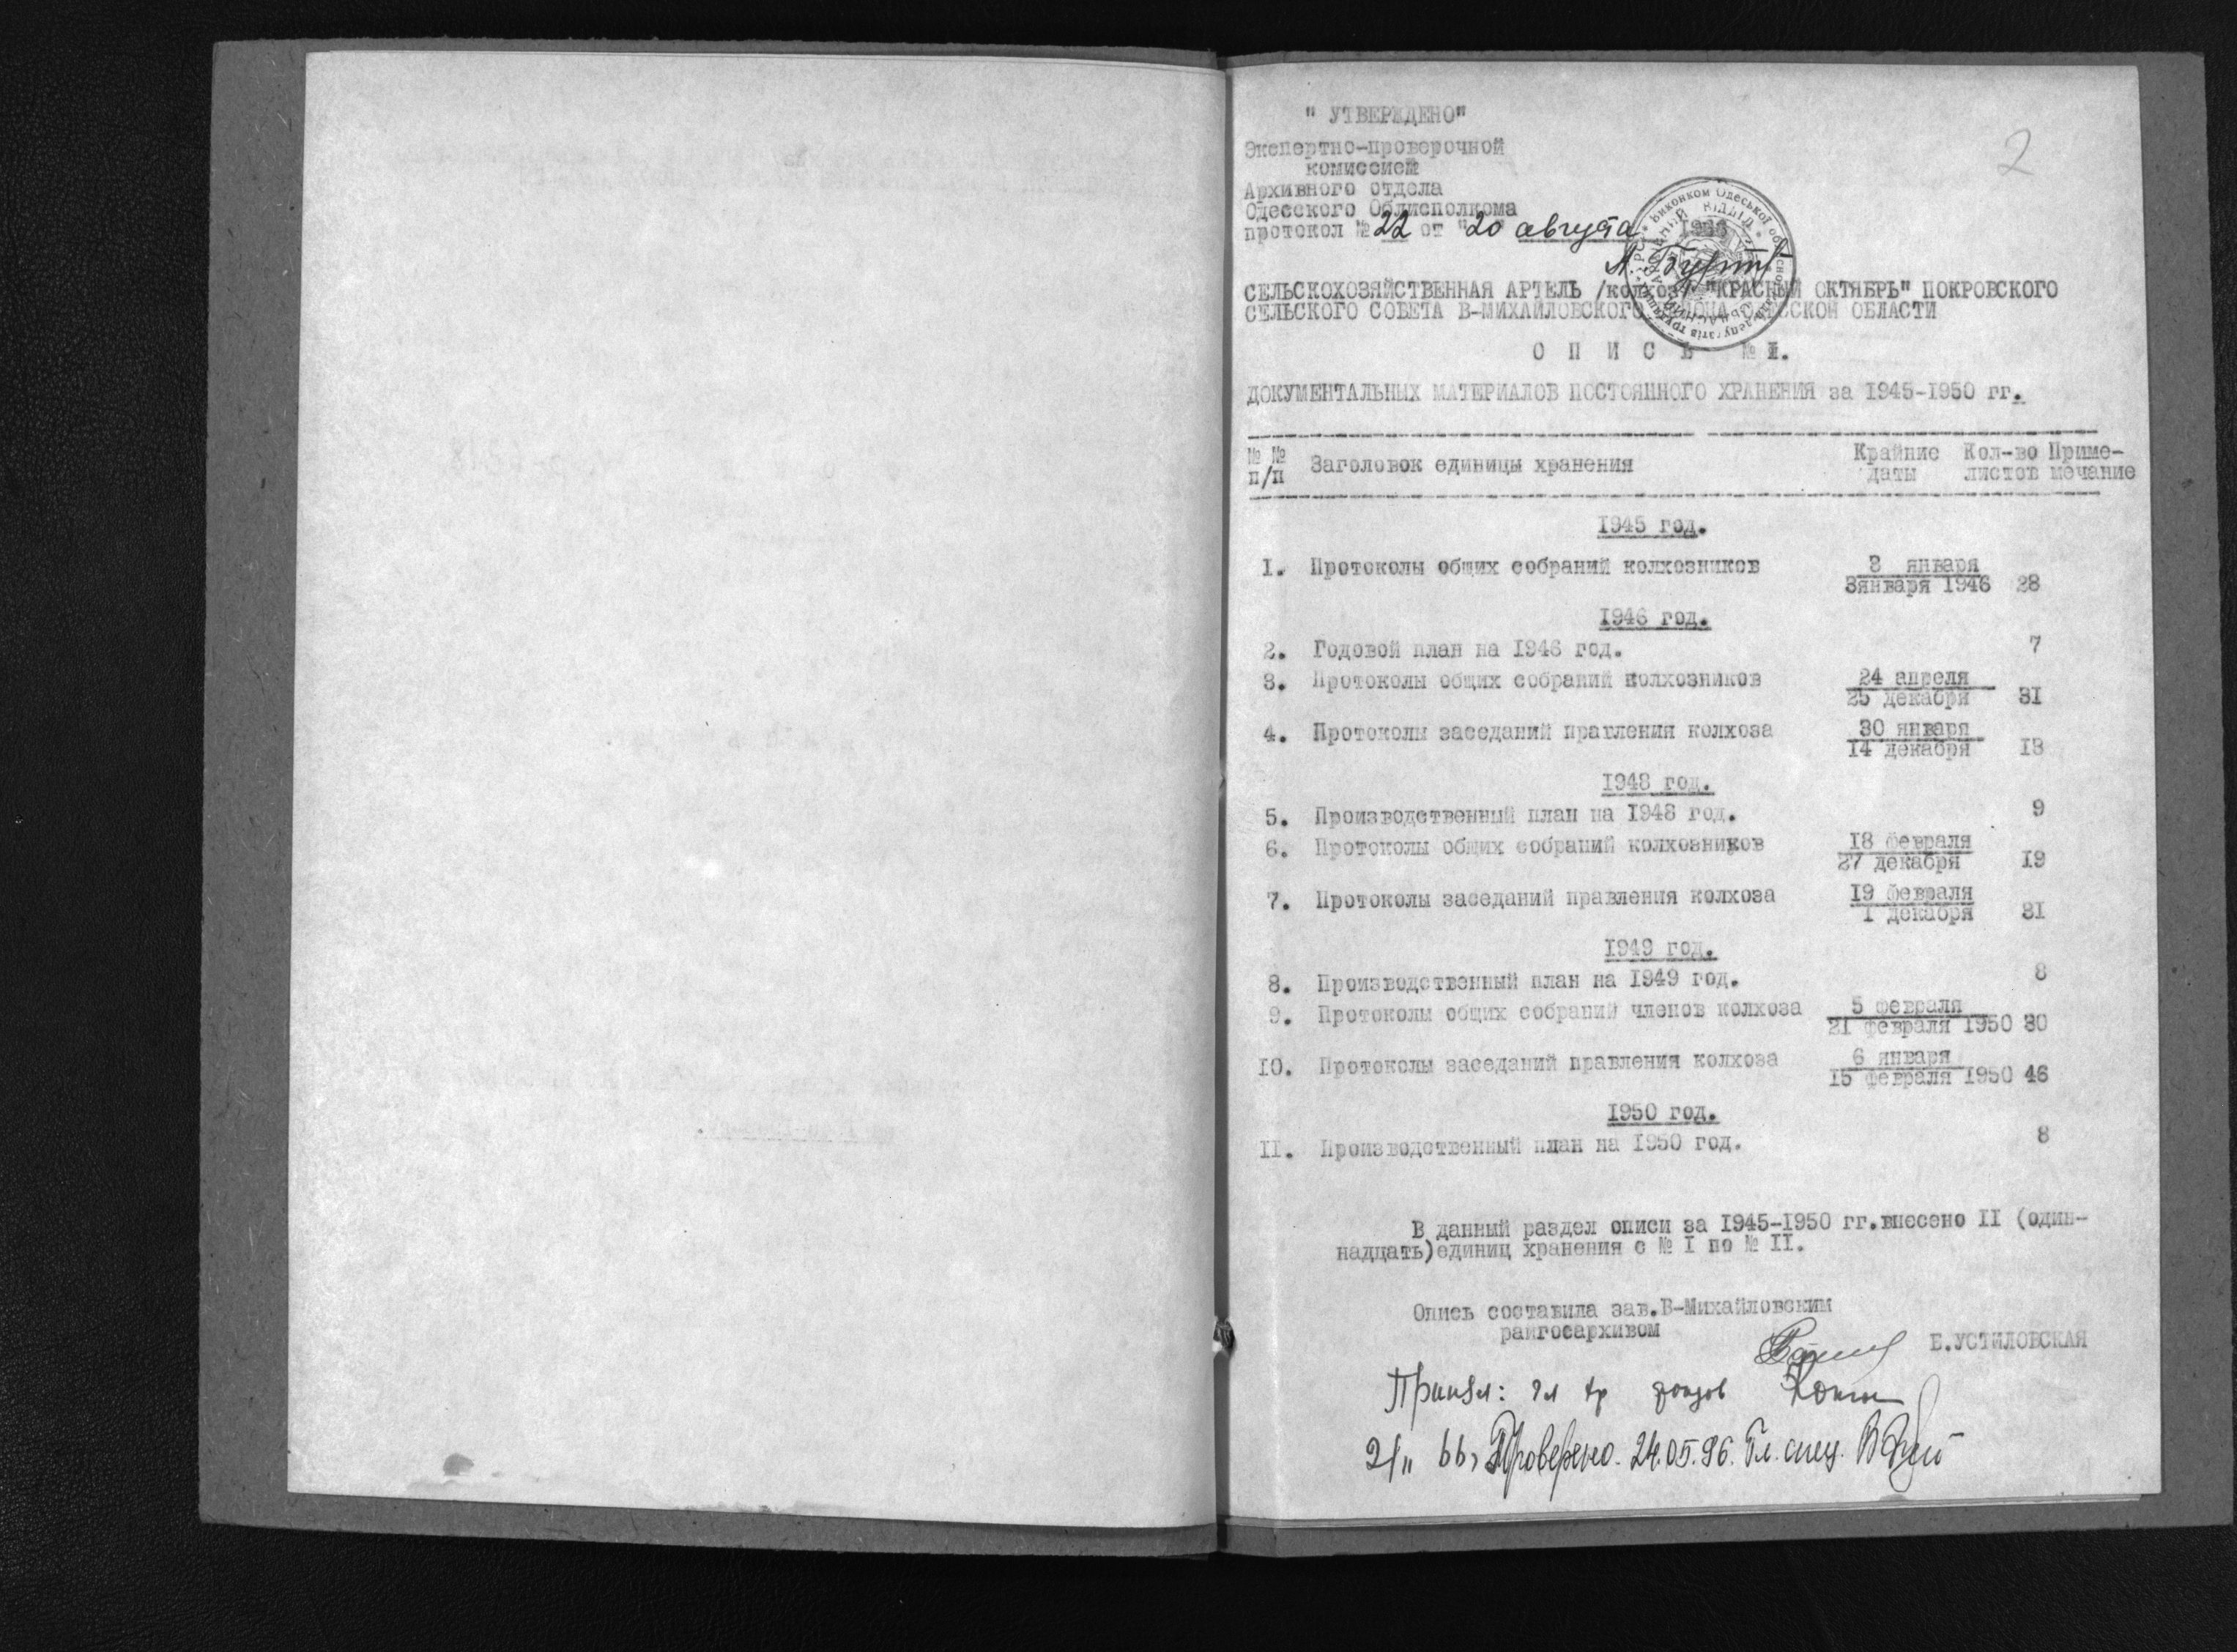 2
" УТВЕРЖДЕНО"
Экспертно-проверочной
комиссией
Архивного отдела
Одесского Облисполкома
протокол № 22 от "20" августа
СЕЛЬСКОХОЗЯЙСТВЕННАЯ АРТЕЛЬ /колхоз/ "КРАСНЫЙ ОКТЯБРЬ" ПОКРОВСКОГО
СЕЛЬСКОГО СОВЕТА В-МИХАЙЛОВСКОГО РАЙОНА ОДЕССКОЙ ОБЛАСТИ
О П И С Ь № I.
ДОКУМЕНТАЛЬНЫХ МАТЕРИАЛОВ ПОСТОЯННОГО ХРАНЕНИЯ за 1945-1950 гг.
№ № Заголовок единицы хранения Крайние Кол-во Приме-
п/п даты листов мечание
1945 год.
I. Протоколы общих собраний колхозников 3 января
3января 1946 28
1946 год.
2. Годовой план на 1946 год. 7
3. Протоколы общих собраний колхозников 24 апреля
25 декабря 31
4. Протоколы заседаний правления колхоза 30 января
14 декабря 13
1948 год.
5. Производственный план на 1948 год. 9
6. Протоколы общих собраний колхозников 18 февраля
27 декабря 19
7. Протоколы заседаний правления колхоза 19 февраля
I декабря 31
1949 год.
8. Производственный план на 1949 год. 8
9. Протоколы общих собраний членов колхоза 5 февраля
21 февраля 1950 30
10. Протоколы заседаний правления колхоза 6 января
15 февраля 1950 46
1950 год.
II. Производственный план на 1950 год. 8
В данный раздел описи за 1945-1950 гг.внесено II (один-
надцать)единиц хранения с № I по № II.
Опись составила зав.В-Михайловским
райгосархивом
Е.УСТИЛОВСКАЯ
Принял: фондов
Проверено. 24.05.96. Гл. спец.